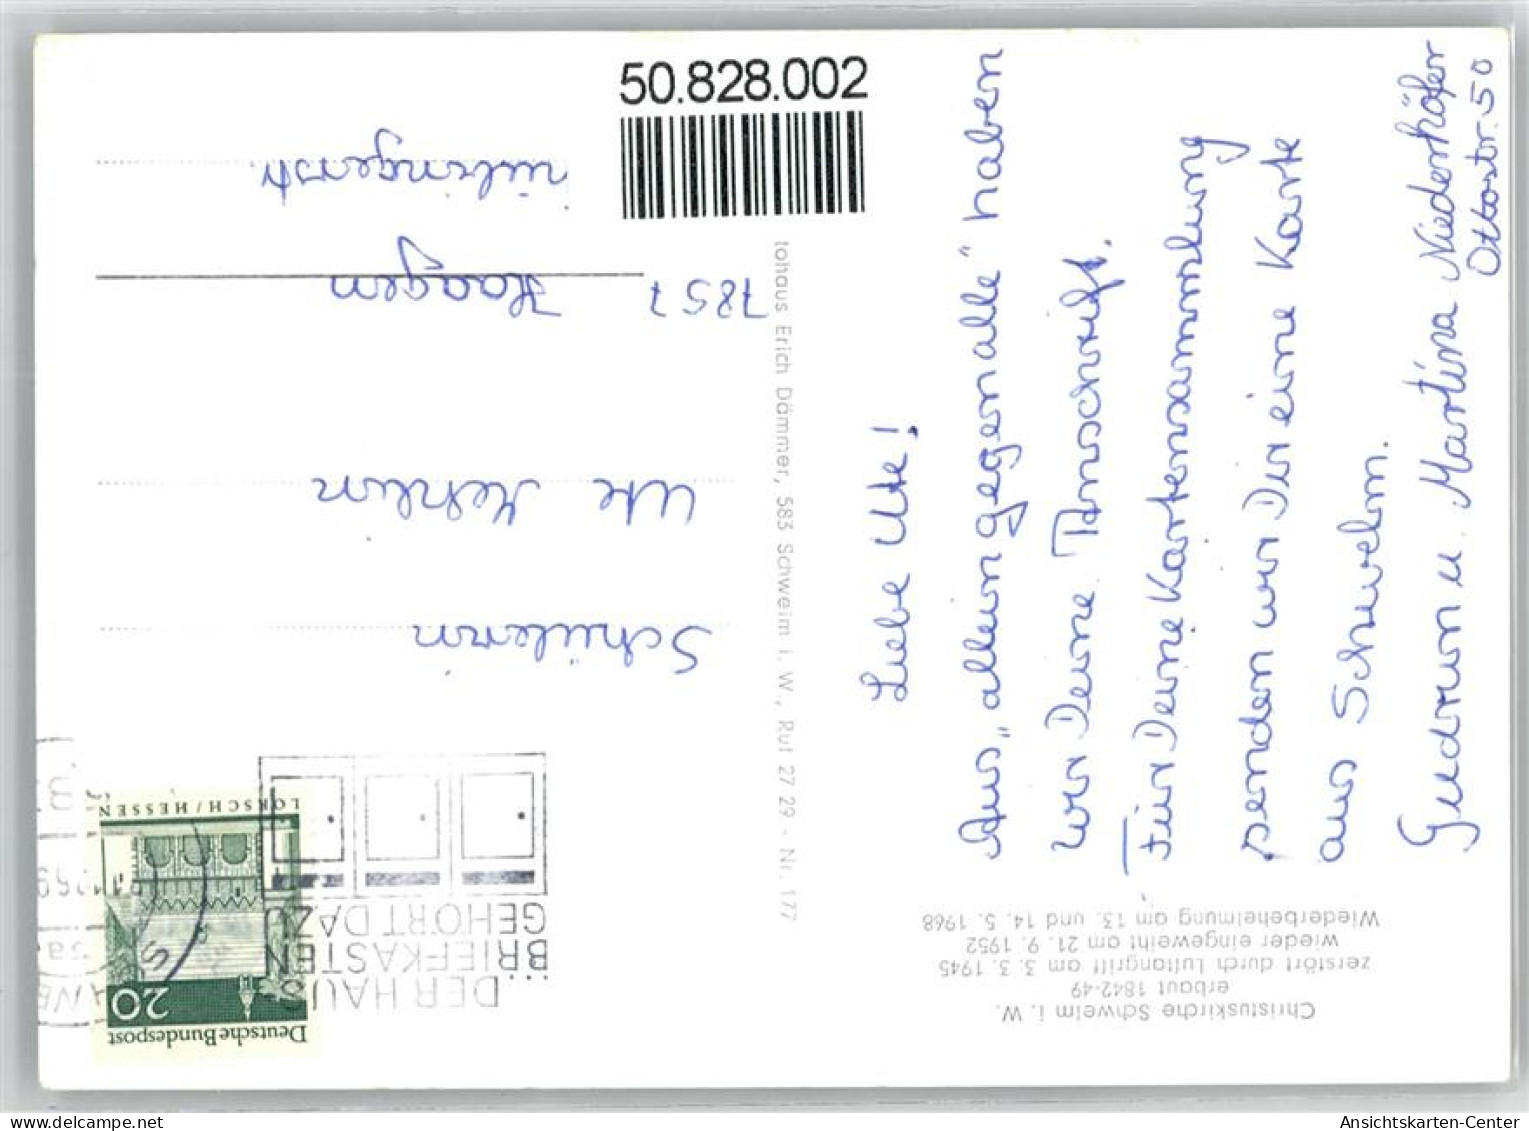 50.828.002
Christuskirche Schwelm i. W.
erbaut 1842-49
zerstört durch Luftangriff am 3. 3. 1945
wieder eingeweiht am 21. 9. 1952
Wiederbeheimung am 13. und 14. 5. 1968
Liebe Ute!
Aus „allem gegenalle" haben
wir Deine Anschrift.
Für Deine Kartensammlung
senden wir Dir eine Karte
aus Schwelm.
Gudrun u. Martina Niederhöfer
Ottostr. 50
tohaus Erich Dämmer, 583 Schwelm i. W., Ruf 27 29 - Nr. 177
Deutsche Bundespost
20
LORSCH/HESSEN
DER HAUS
...BRIEFKASTEN
GEHÖRT DAZU
Schülerin
Ute
7857 Haagen